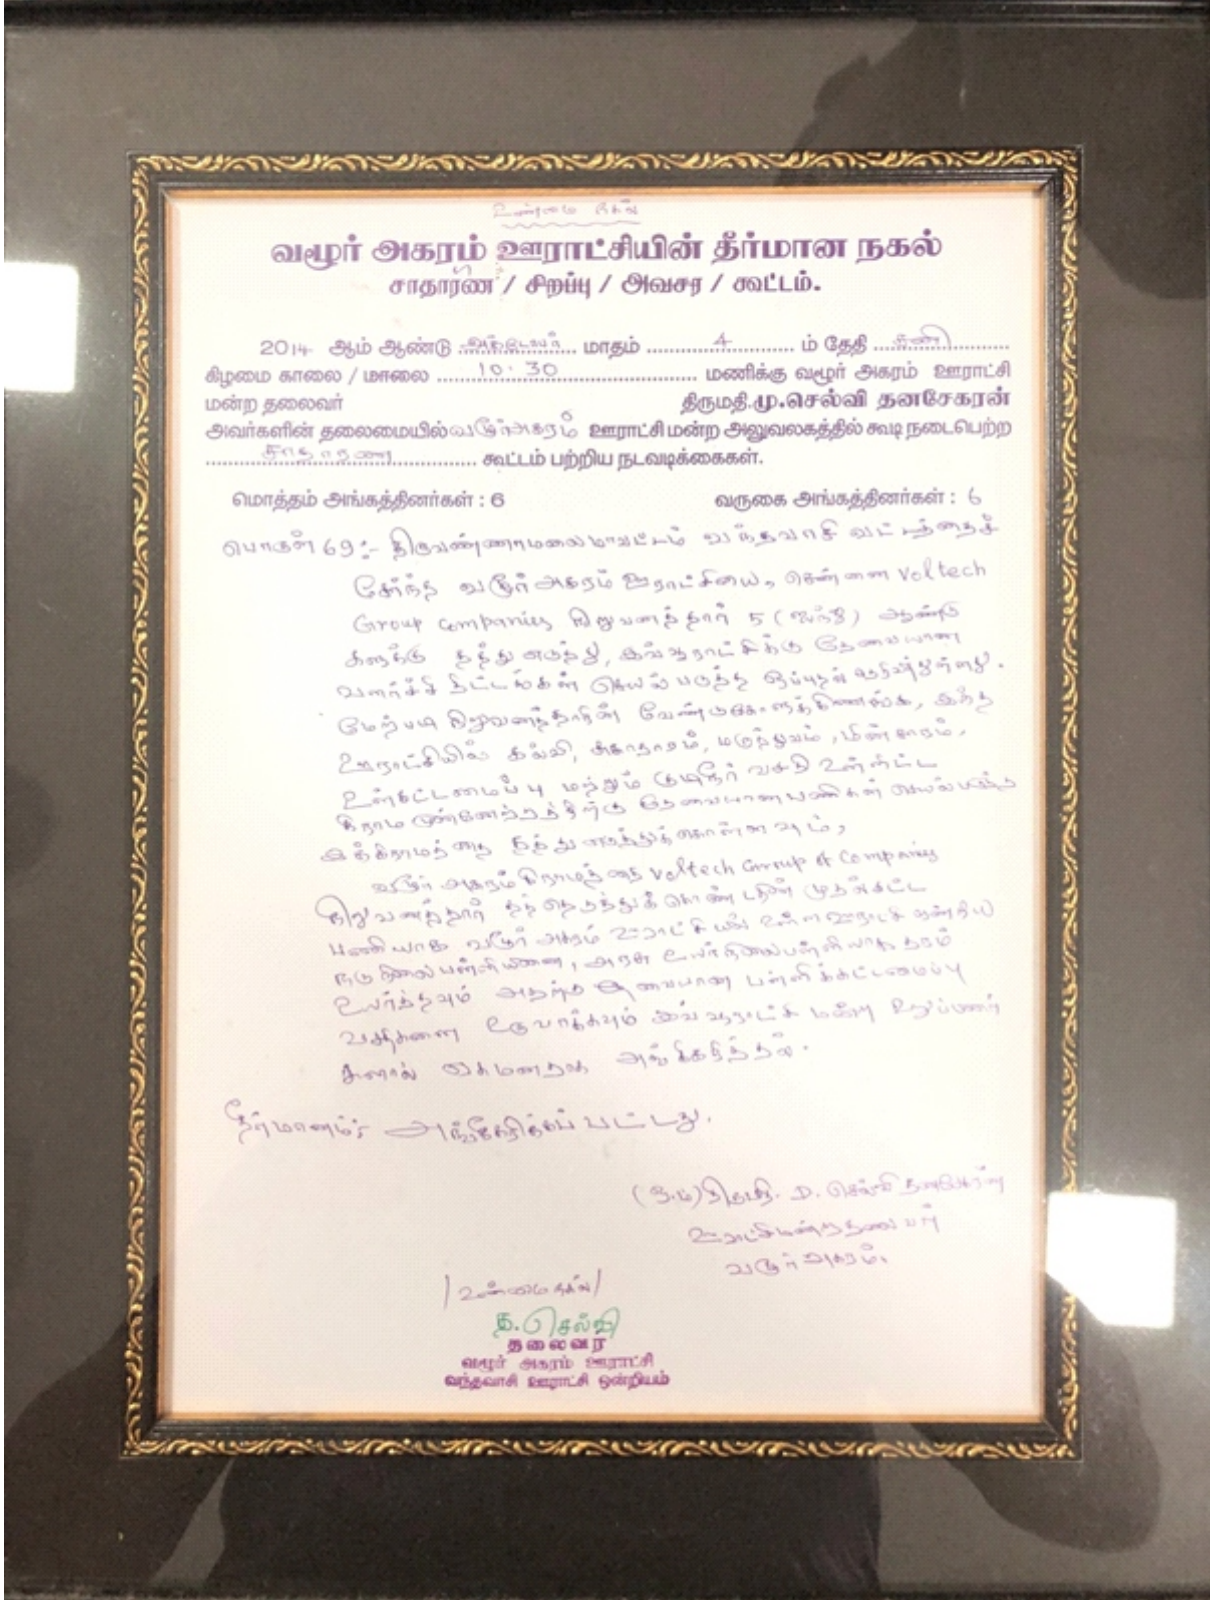 உண்மை நகல்
வழூர் அகரம் ஊராட்சியின் தீர்மான நகல்
சாதாரண / சிறப்பு / அவசர / கூட்டம்.
2014 ஆம் ஆண்டு அக்டோபர் மாதம் 4 ம் தேதி சனி
கிழமை காலை / மாலை 10.30 மணிக்கு வழூர் அகரம் ஊராட்சி
மன்ற தலைவர் திருமதி.மு.செல்வி தனசேகரன்
அவர்களின் தலைமையில் வழூர் அகரம் ஊராட்சி மன்ற அலுவலகத்தில் கூடி நடைபெற்ற
சாதாரண கூட்டம் பற்றிய நடவடிக்கைகள்.
மொத்தம் அங்கத்தினர்கள் : 6 வருகை அங்கத்தினர்கள் : 6
பொருள் 69 :- திருவண்ணாமலை மாவட்டம் வந்தவாசி வட்டத்தைச்
சேர்ந்த வழூர் அகரம் ஊராட்சியை, சென்னை Voltech
Group Companies நிறுவனத்தார் 5 (ஐந்து) ஆண்டு
களுக்கு தத்து எடுத்து, இவ்வூராட்சிக்கு தேவையான
வளர்ச்சி திட்டங்கள் செயல்படுத்த ஒப்புதல் தெரிவித்துள்ளது.
மேற்படி நிறுவனத்தாரின் வேண்டுகோளுக்கிணங்க, இந்த
ஊராட்சியில் கல்வி, சுகாதாரம், மருத்துவம், மின்சாரம்,
உள்கட்டமைப்பு மற்றும் குடிநீர் வசதி உள்ளிட்ட
கிராம முன்னேற்றத்திற்கு தேவையான பணிகள் செயல்படுத்த
இக்கிராமத்தை தத்து எடுத்துக்கொள்ளவும்,
வழூர் அகரம் கிராமத்தை Voltech Group of Companies
நிறுவனத்தார் தத்தெடுத்துக் கொண்டதின் முதற்கட்ட
பணியாக வழூர் அகரம் ஊராட்சியில் உள்ள ஊராட்சி ஒன்றிய
நடுநிலைப்பள்ளியினை, அரசு உயர்நிலைப்பள்ளியாக தரம்
உயர்த்தவும் அதற்கு தேவையான பள்ளிக்கட்டமைப்பு
வசதிகளை உருவாக்கவும் இவ்வூராட்சி மன்ற உறுப்பினர்
களால் ஏகமனதாக அங்கீகரித்தல்.
தீர்மானம் : அங்கீகரிக்கப்பட்டது.
(ஒ.ம்) திருமதி. D. செல்வி தனசேகரன்
ஊராட்சிமன்ற தலைவர்
வழூர் அகரம்.
/ உண்மை நகல் /
த. செல்வி
தலைவர்
வழூர் அகரம் ஊராட்சி
வந்தவாசி ஊராட்சி ஒன்றியம்